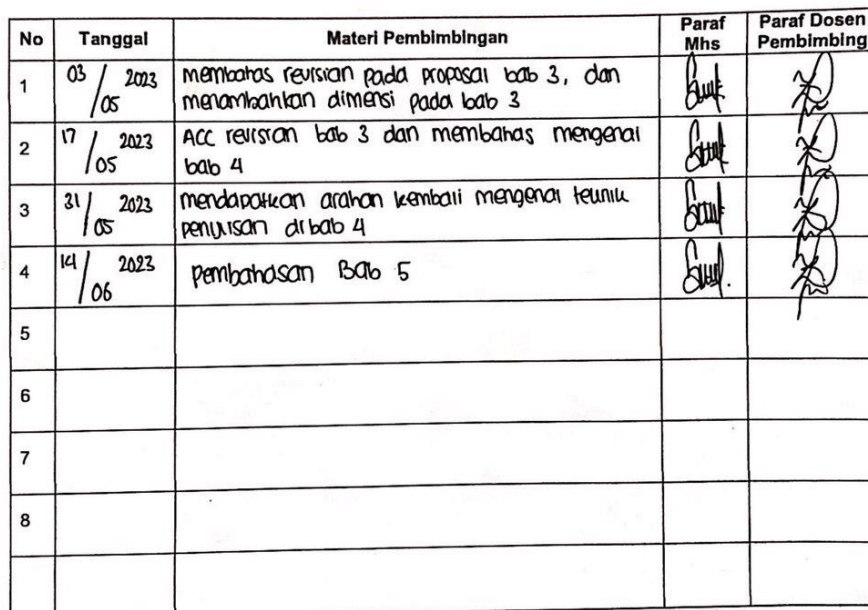 No Tanggal Materi Pembimbingan Paraf Mhs Paraf Dosen Pembimbing
1 03/05 2023 membahas revisian pada proposal bab 3, dan
menambahkan dimensi pada bab 3
2 17/05 2023 ACC revisian bab 3 dan membahas mengenai
bab 4
3 31/05 2023 mendapatkan arahan kembali mengenai teknik
penulisan di bab 4
4 14/06 2023 pembahasan Bab 5
5
6
7
8